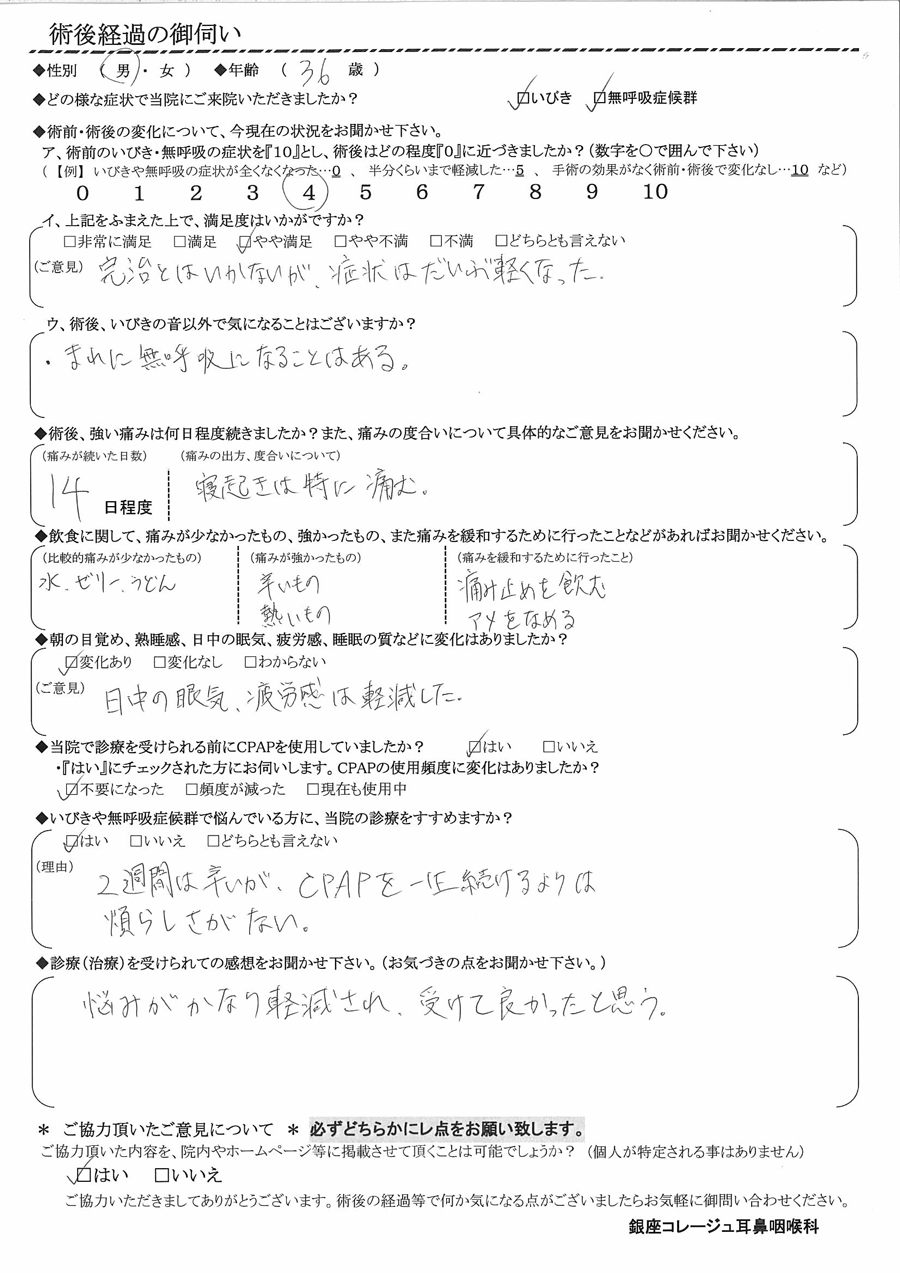 術後経過の御伺い
◆性別 （ 男 ・ 女 ） ◆年齢 （ 36 歳 ）
◆どの様な症状で当院にご来院いただきましたか？ ☑いびき ☑無呼吸症候群
◆術前・術後の変化について、今現在の状況をお聞かせ下さい。
ア、術前のいびき・無呼吸の症状を『10』とし、術後はどの程度『0』に近づきましたか？（数字を〇で囲んで下さい）
（ 【例】 いびきや無呼吸の症状が全くなくなった…0 、 半分くらいまで軽減した…5 、 手術の効果がなく術前・術後で変化なし…10 など）
0 1 2 3 4 5 6 7 8 9 10
イ、上記をふまえた上で、満足度はいかがですか？
□非常に満足 □満足 ☑やや満足 □やや不満 □不満 □どちらとも言えない
（ご意見） 完治とはいかないが、症状はだいぶ軽くなった。
ウ、術後、いびきの音以外で気になることはございますか？
・まれに無呼吸になることはある。
◆術後、強い痛みは何日程度続きましたか？また、痛みの度合いについて具体的なご意見をお聞かせください。
（痛みが続いた日数） （痛みの出方、度合いについて）
14 日程度 寝起きは特に痛む。
◆飲食に関して、痛みが少なかったもの、強かったもの、また痛みを緩和するために行ったことなどがあればお聞かせください。
（比較的痛みが少なかったもの） （痛みが強かったもの） （痛みを緩和するために行ったこと）
水、ゼリー、うどん 辛いもの 痛み止めを飲む
熱いもの アメをなめる
◆朝の目覚め、熟睡感、日中の眠気、疲労感、睡眠の質などに変化はありましたか？
☑変化あり □変化なし □わからない
（ご意見） 日中の眠気、疲労感は軽減した。
◆当院で診療を受けられる前にCPAPを使用していましたか？ ☑はい □いいえ
・『はい』にチェックされた方にお伺いします。CPAPの使用頻度に変化はありましたか？
☑不要になった □頻度が減った □現在も使用中
◆いびきや無呼吸症候群で悩んでいる方に、当院の診療をすすめますか？
☑はい □いいえ □どちらとも言えない
（理由） 2週間は辛いが、CPAPを一生続けるよりは
煩らしさがない。
◆診療（治療）を受けられての感想をお聞かせ下さい。（お気づきの点をお聞かせ下さい。）
悩みがかなり軽減され、受けて良かったと思う。
＊ ご協力頂いたご意見について ＊ 必ずどちらかにレ点をお願い致します。
ご協力頂いた内容を、院内やホームページ等に掲載させて頂くことは可能でしょうか？ （個人が特定される事はありません）
☑はい □いいえ
ご協力いただきましてありがとうございます。術後の経過等で何か気になる点がございましたらお気軽に御問い合わせください。
銀座コレージュ耳鼻咽喉科